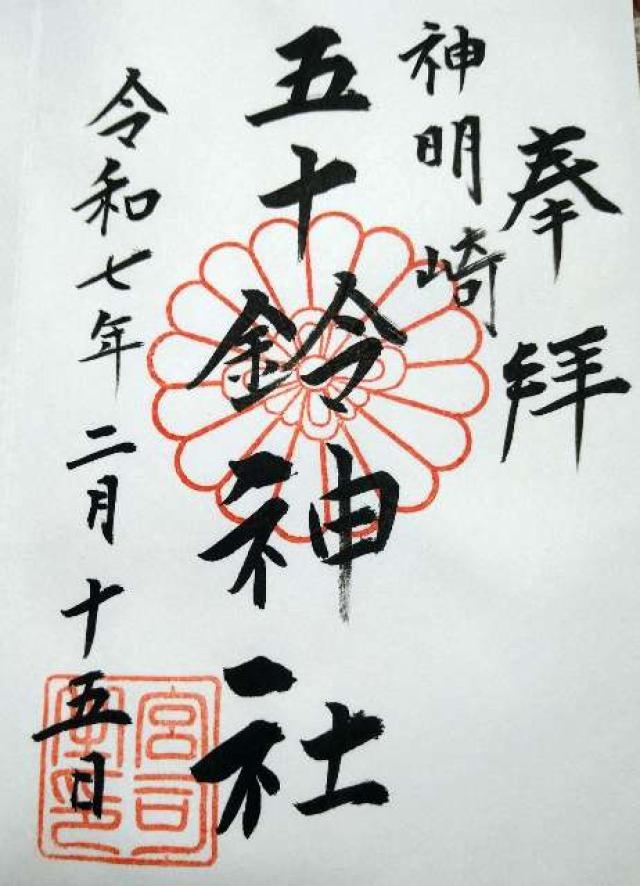 奉拝
神明崎
五十鈴神社
令和七年二月十五日
宮司